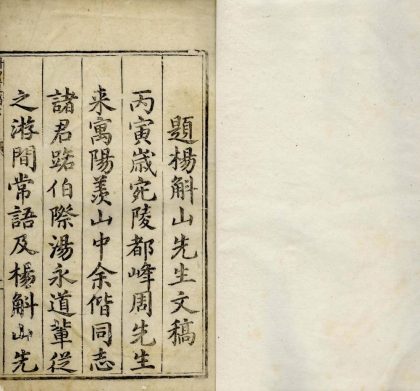 題楊斛山先生文稿
丙寅歲宛陵都峰周先生
来寓陽羨山中余偕同志
諸君踏伯際湯永道輩従
之游間常語及楊斛山先